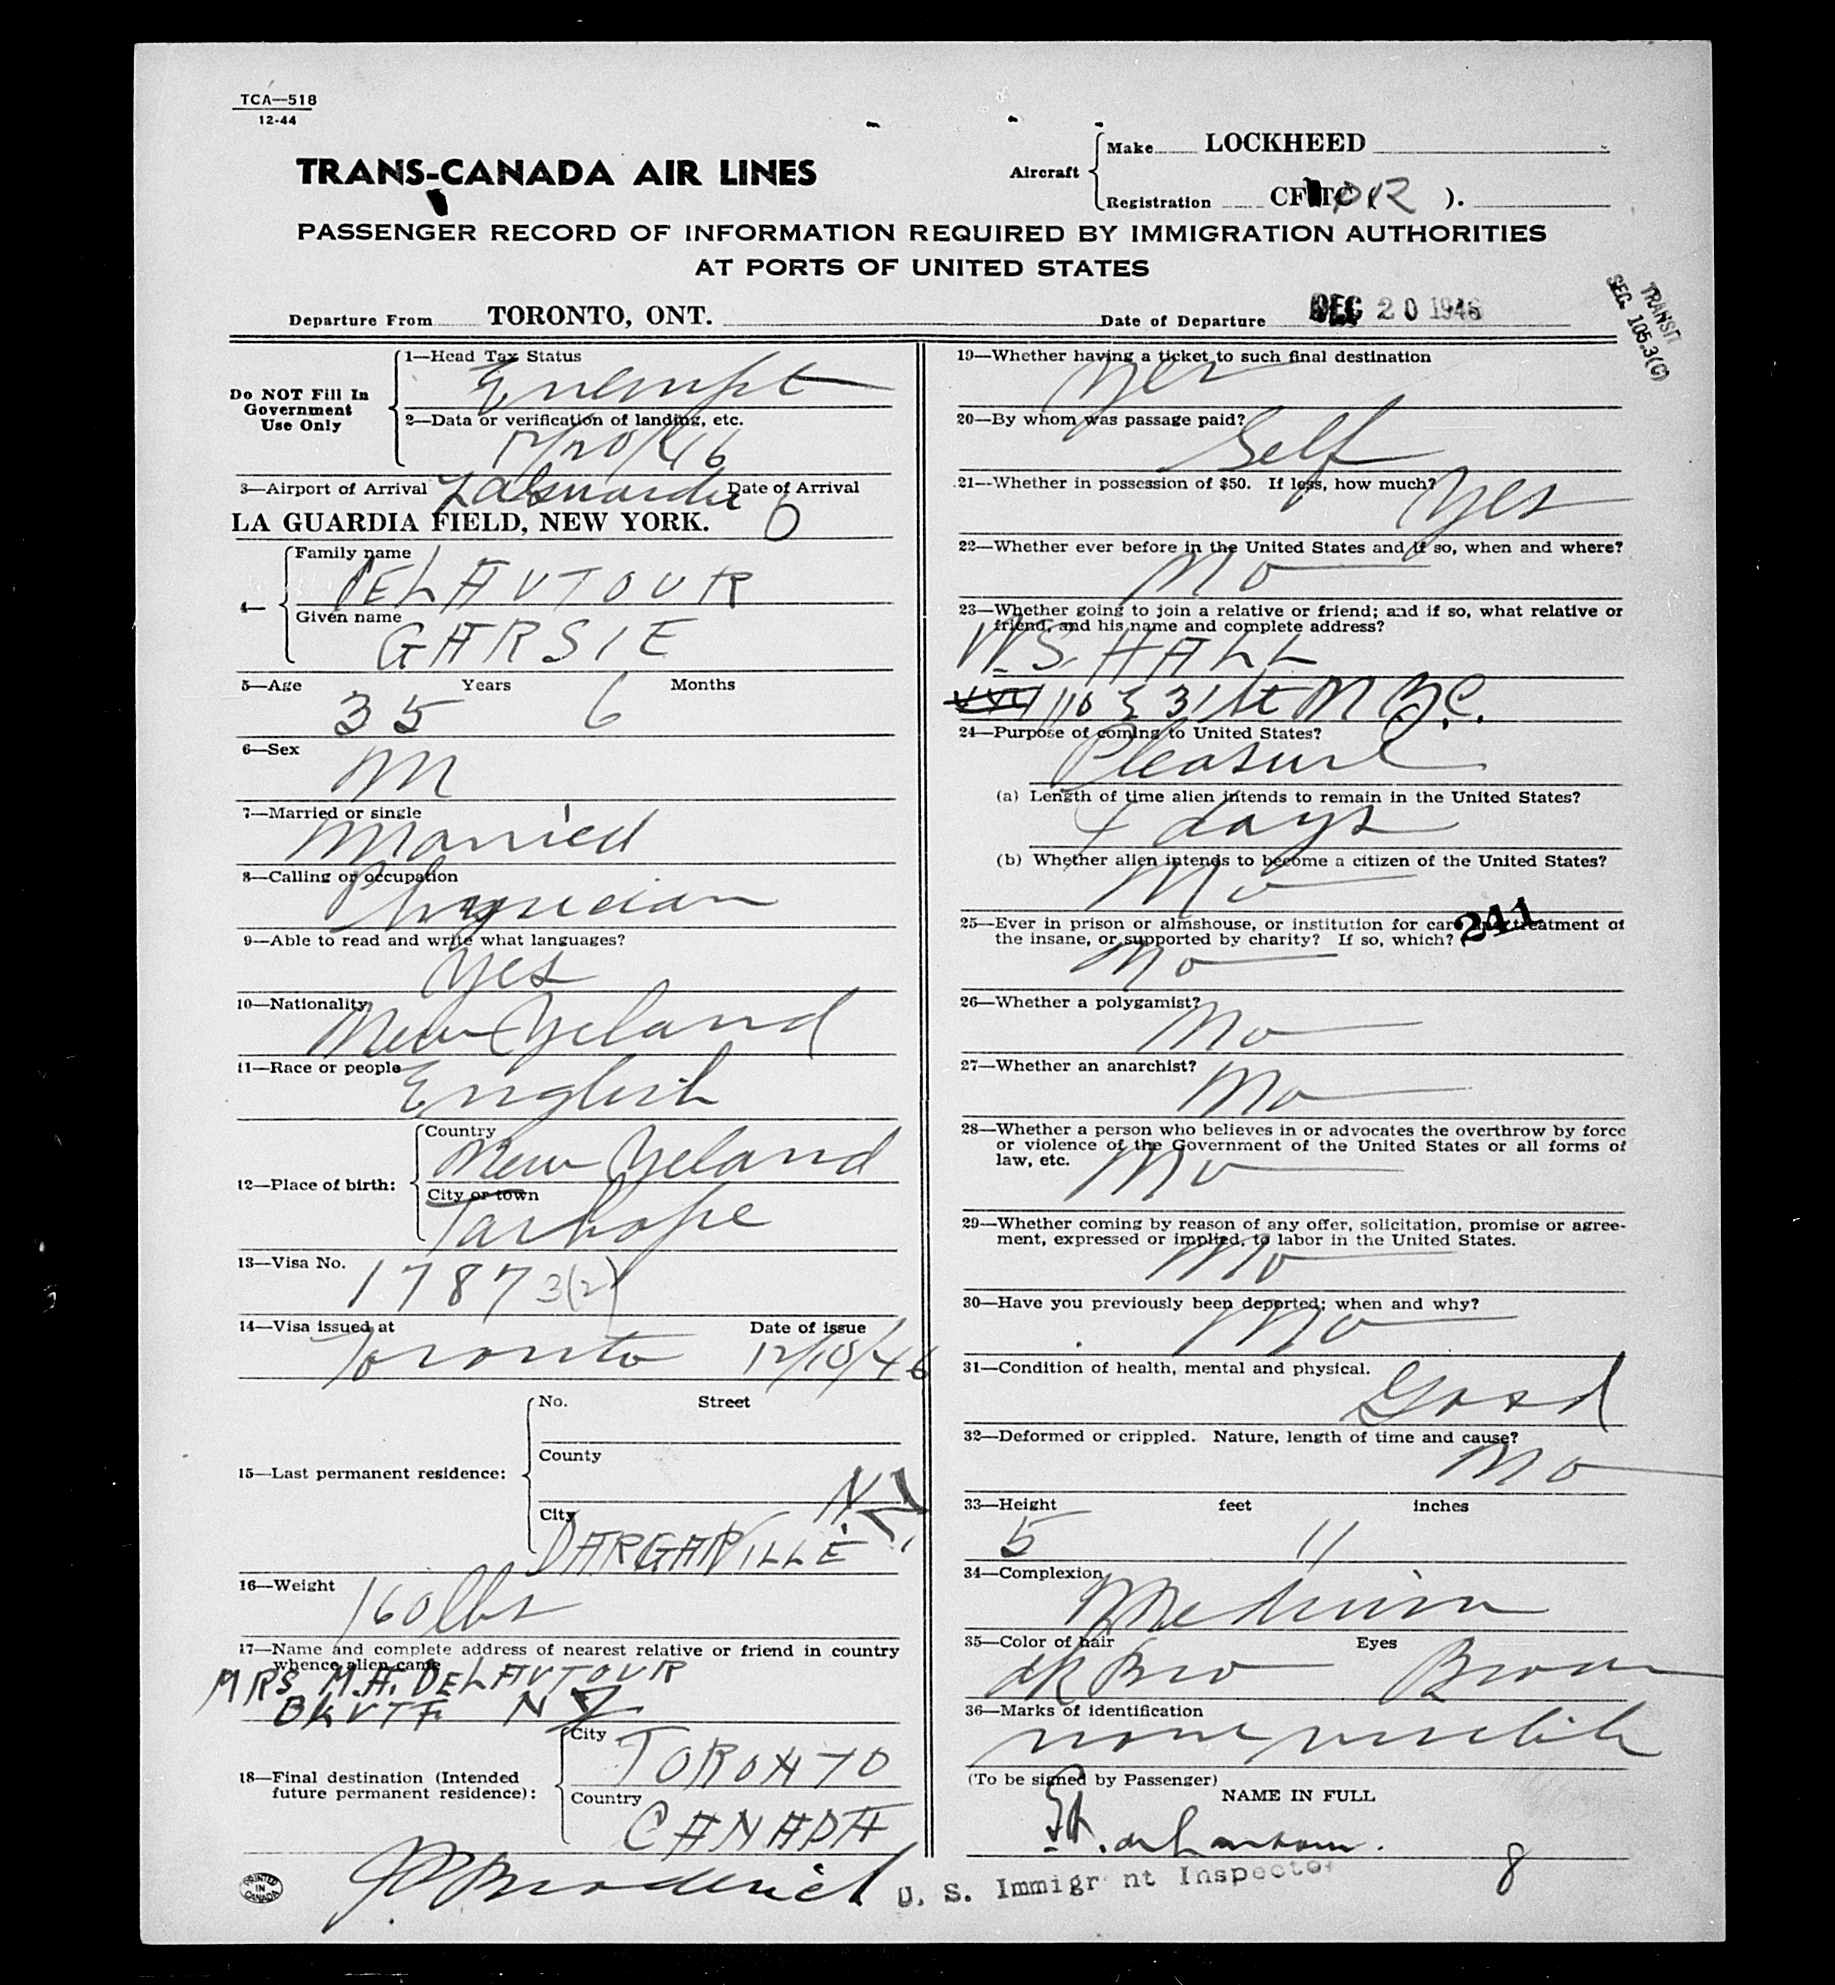 TCA—518
12-44
TRANS-CANADA AIR LINES
Aircraft
Make LOCKHEED
Registration CF TC ( R ).
PASSENGER RECORD OF INFORMATION REQUIRED BY IMMIGRATION AUTHORITIES
AT PORTS OF UNITED STATES
Departure From TORONTO, ONT.
Date of Departure DEC 20 1946
TRANSIT
SEC. 105.3(C)
Do NOT Fill In
Government
Use Only
1—Head Tax Status
Exempt
2—Data or verification of landing, etc.
12/20/46
3—Airport of Arrival LaGuardia Date of Arrival
LA GUARDIA FIELD, NEW YORK.
4—
Family name
DELAUTOUR
Given name
GARSIE
5—Age Years Months
35 6
6—Sex
M
7—Married or single
Married
8—Calling or occupation
Physician
9—Able to read and write what languages?
Yes
10—Nationality
New Zeland
11—Race or people
English
12—Place of birth:
Country
New Zeland
City or town
13—Visa No.
17873(2)
14—Visa issued at Date of issue
Toronto 12/10/46
15—Last permanent residence:
No. Street
County
City
N.Z.
DARGAVILLE
16—Weight
160 lbs
17—Name and complete address of nearest relative or friend in country
whence alien came
MRS M.A. DELAUTOUR
N Z
18—Final destination (Intended
future permanent residence):
City
TORONTO
Country
CANADA
PRINTED
IN
CANADA
19—Whether having a ticket to such final destination
Yes
20—By whom was passage paid?
Self
21—Whether in possession of $50. If less, how much?
Yes
22—Whether ever before in the United States and if so, when and where?
No
23—Whether going to join a relative or friend; and if so, what relative or
friend, and his name and complete address?
W.S. HALL
110 E 31 St N.Y.C.
24—Purpose of coming to United States?
Pleasure
(a) Length of time alien intends to remain in the United States?
4 days
(b) Whether alien intends to become a citizen of the United States?
No
25—Ever in prison or almshouse, or institution for care and treatment of
the insane, or supported by charity? If so, which?
241
No
26—Whether a polygamist?
No
27—Whether an anarchist?
No
28—Whether a person who believes in or advocates the overthrow by force
or violence of the Government of the United States or all forms of
law, etc.
No
29—Whether coming by reason of any offer, solicitation, promise or agree-
ment, expressed or implied, to labor in the United States.
No
30—Have you previously been deported; when and why?
No
31—Condition of health, mental and physical.
Good
32—Deformed or crippled. Nature, length of time and cause?
No
33—Height feet inches
5 11
34—Complexion
Medium
35—Color of hair Eyes
dk Bro Brown
36—Marks of identification
none visible
(To be signed by Passenger)
NAME IN FULL
de Lautour.
8
Broderick U. S. Immigrant Inspector